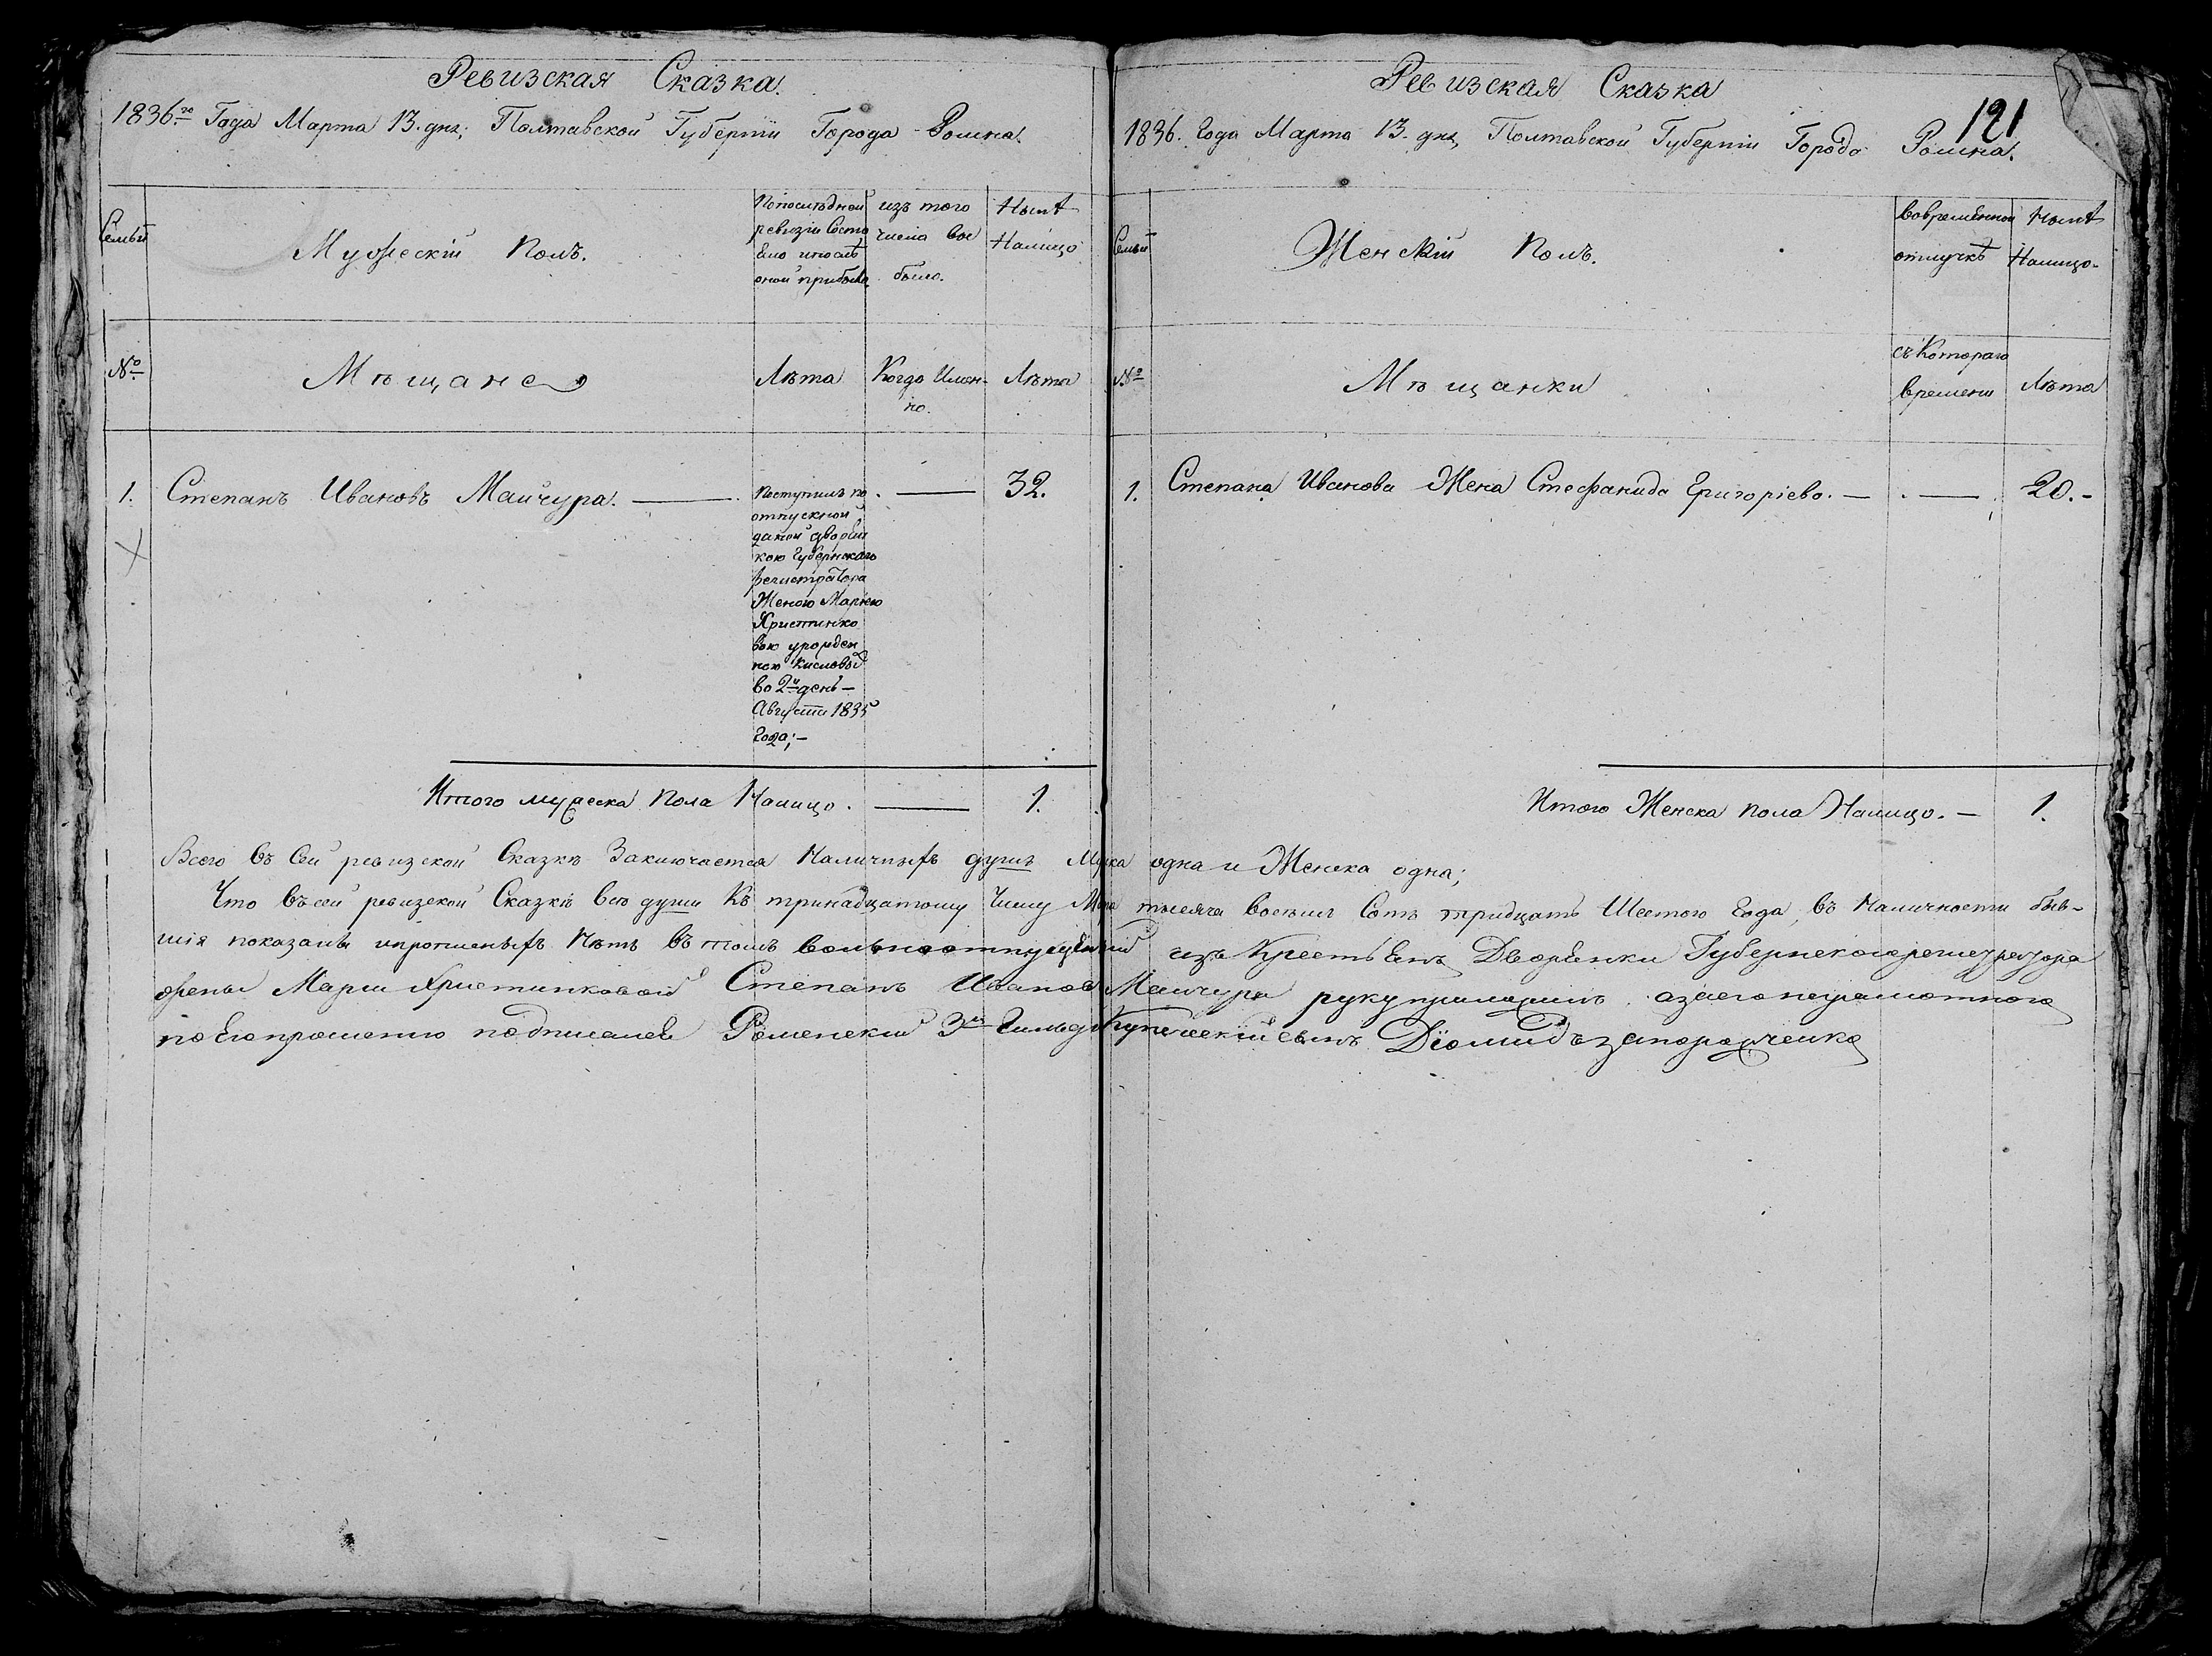 Ревизская Сказка
1836го Года Марта 13. дня; Полтавской Губернiи Города Ромна.
Семьи
Мужескiй Полъ.
Попоследней
ревизiи Состо
яло ипослѣ
оной прибыло.
изъ того
числа вы
было.
Нынѣ
Налицо
№
Мѣщане
Лѣта
Когда Имен-
но.
Лѣта
1. Степанъ Ивановъ Майчура. — 32.
Поступилъ по
отпускной
даной дворян
кою Губернскаго
регистратора
Женою Марiею
Христинко
вою урожден
ною Кисловой
во 2й день —
Августа 1835
Года; —
Итого мужеска Пола Налицо. — 1.
Ревизская Сказка
121
1836. Года Марта 13. дня, Полтавской Губернiи Города Ромна.
Семьи
Женскiй Полъ.
вовременной
отлучкѣ
Нынѣ
Налицо.
№
Мѣщанки
съ Котораго
времени
Лѣта
1. Степана Иванова Жена Стефанида Григорiева. — . — 20. —
Итого Женска пола Налицо. — 1.
Всего въ Сей ревизской Сказкѣ Заключается Наличныхъ душъ Муска одна и Женска одна;
Что въ сей ревизской Сказкѣ всѣ души Къ тринадцатому Числу Марта тысяча восемь Сотъ тридцать Шестого Года, въ Наличности быв-
шiя показаны ипропшеныхъ Нѣтъ въ томъ вольноотпущенный изъ Крестьянъ Дворянки Губернскогорегистратора
жены Марiи Христинковой Степанъ Иванов Майчура руку приложилъ. азаегонеграмотного
по Его прошению подписался Роменский 3й Гильди Купеческiй сынъ Дiомидъ Запорожченко